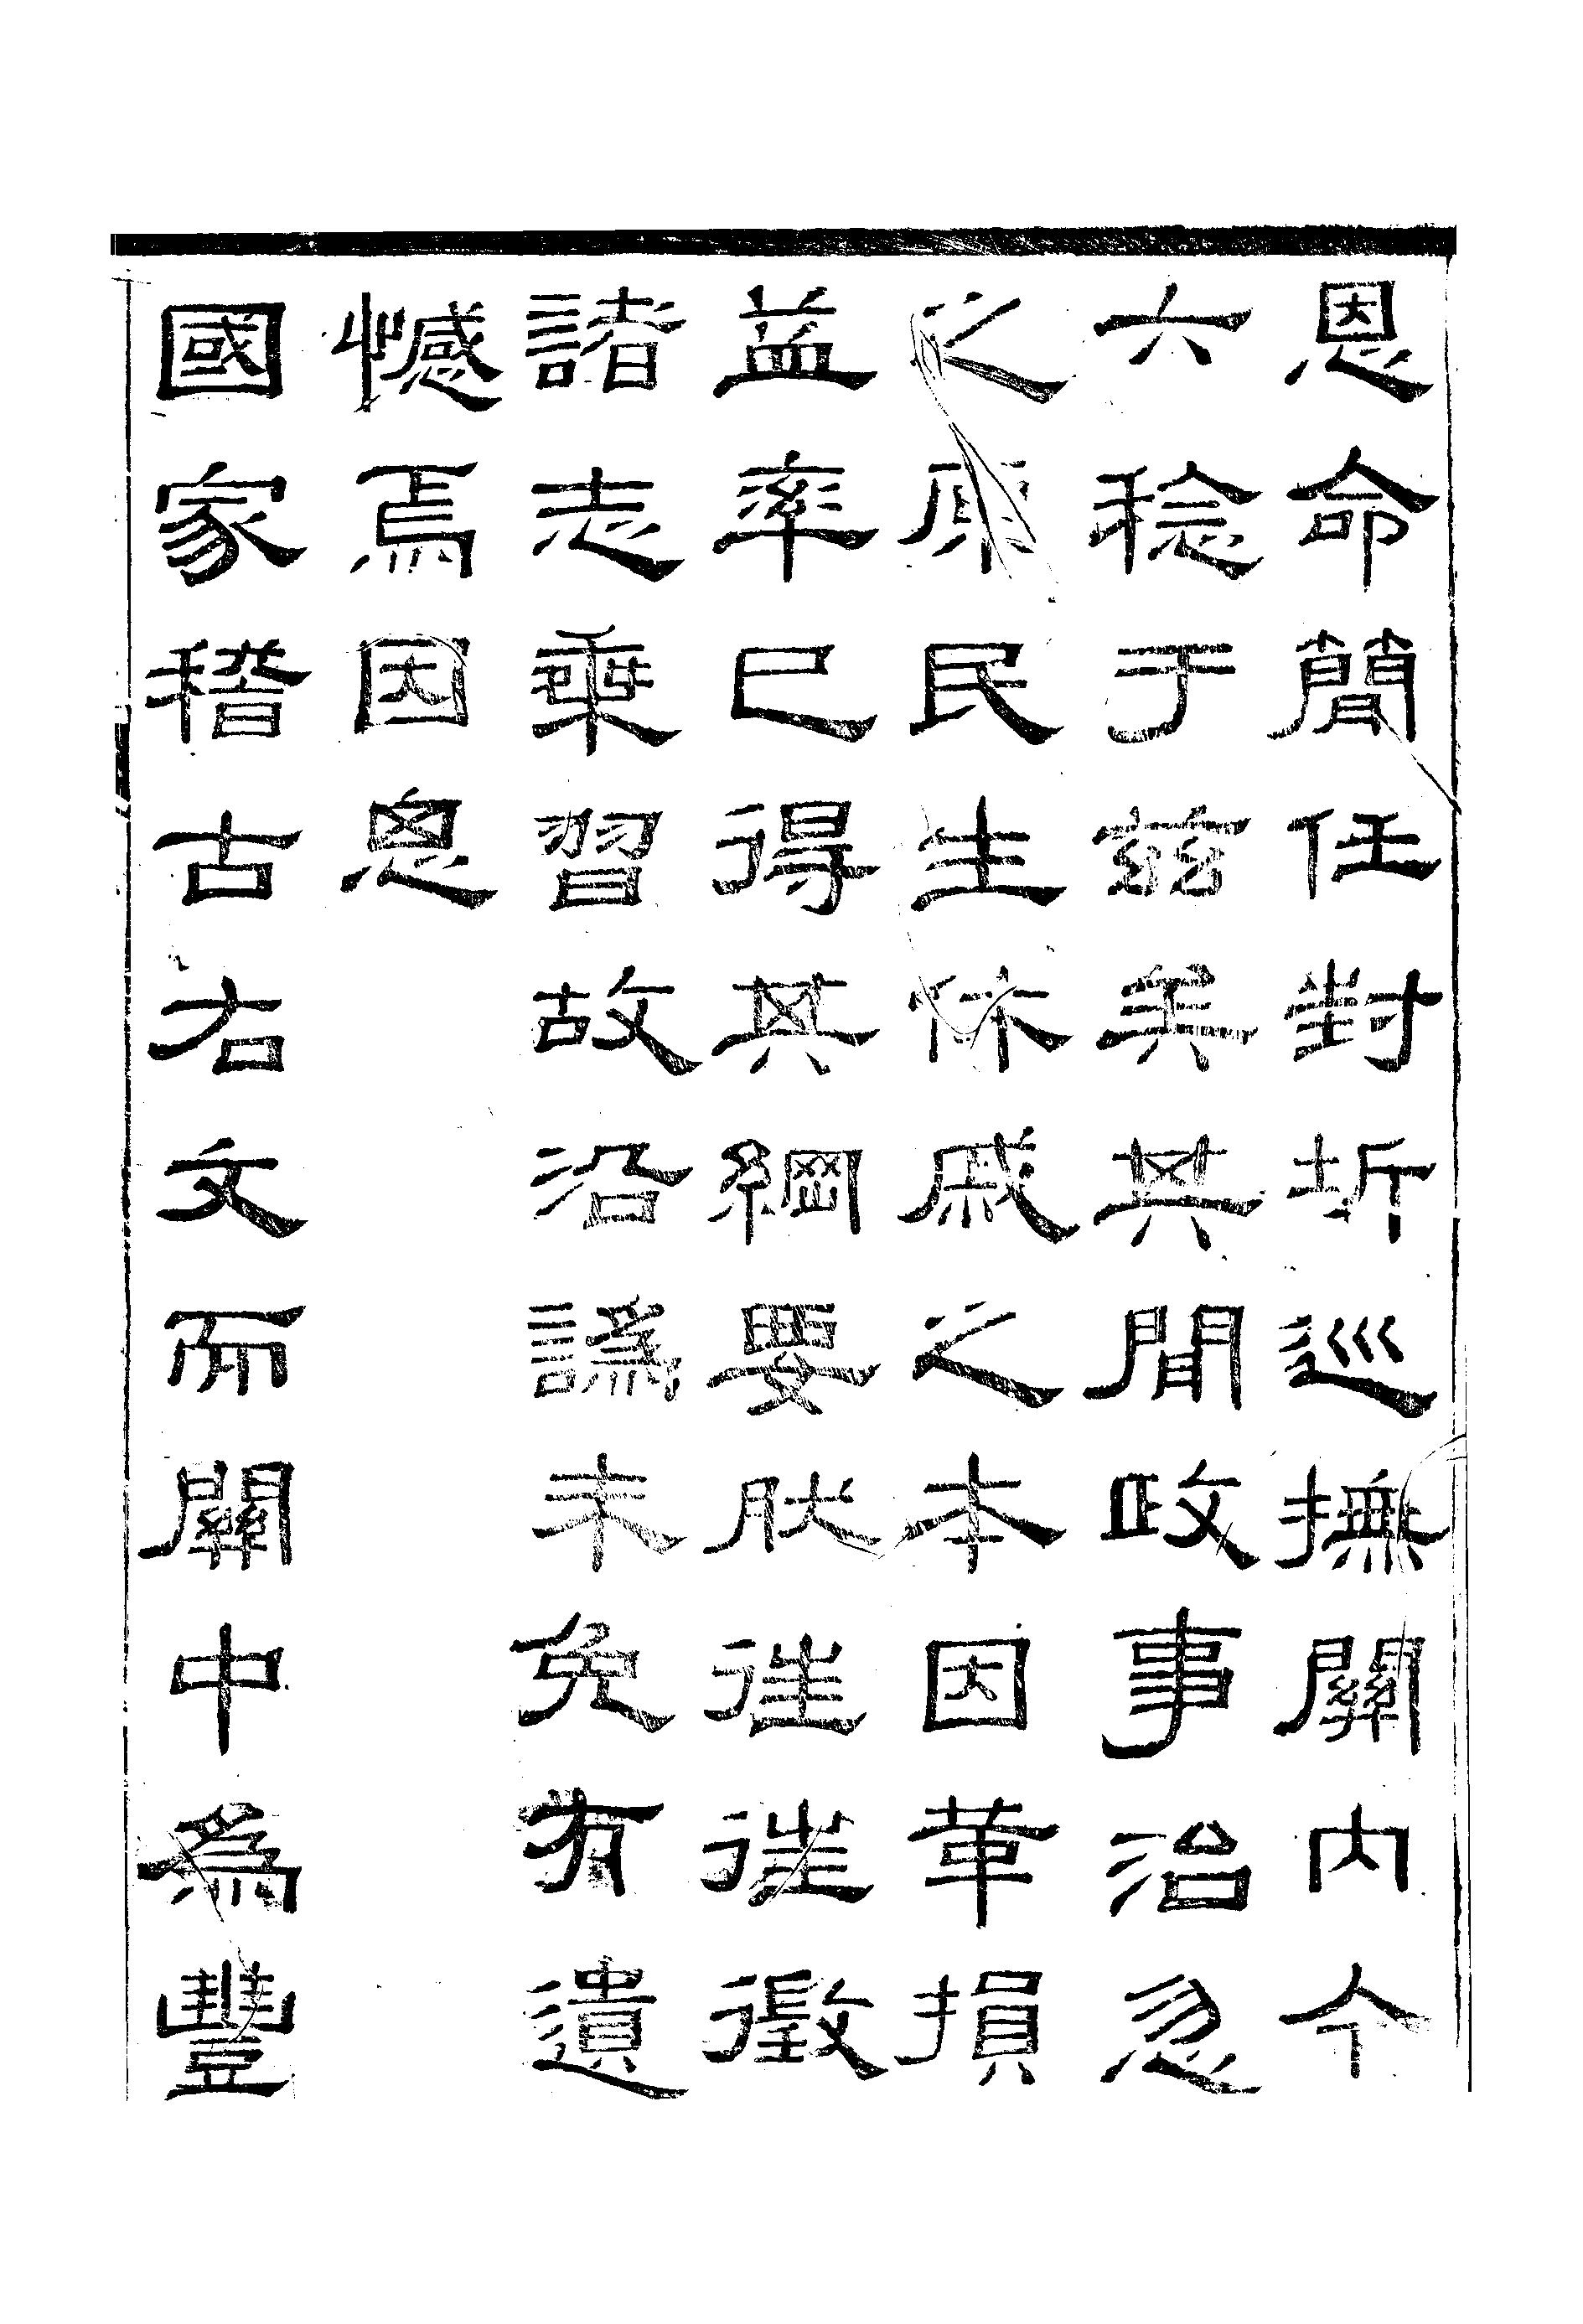 恩命簡任封圻巡撫關内今
六稔于兹矣其閒政事治忽
之原民生休戚之本因革損
益率已得其綱要狀往往徵
諸志乘習故沿譌未免有遺
憾焉因思
國家稽古右文而關中爲豐